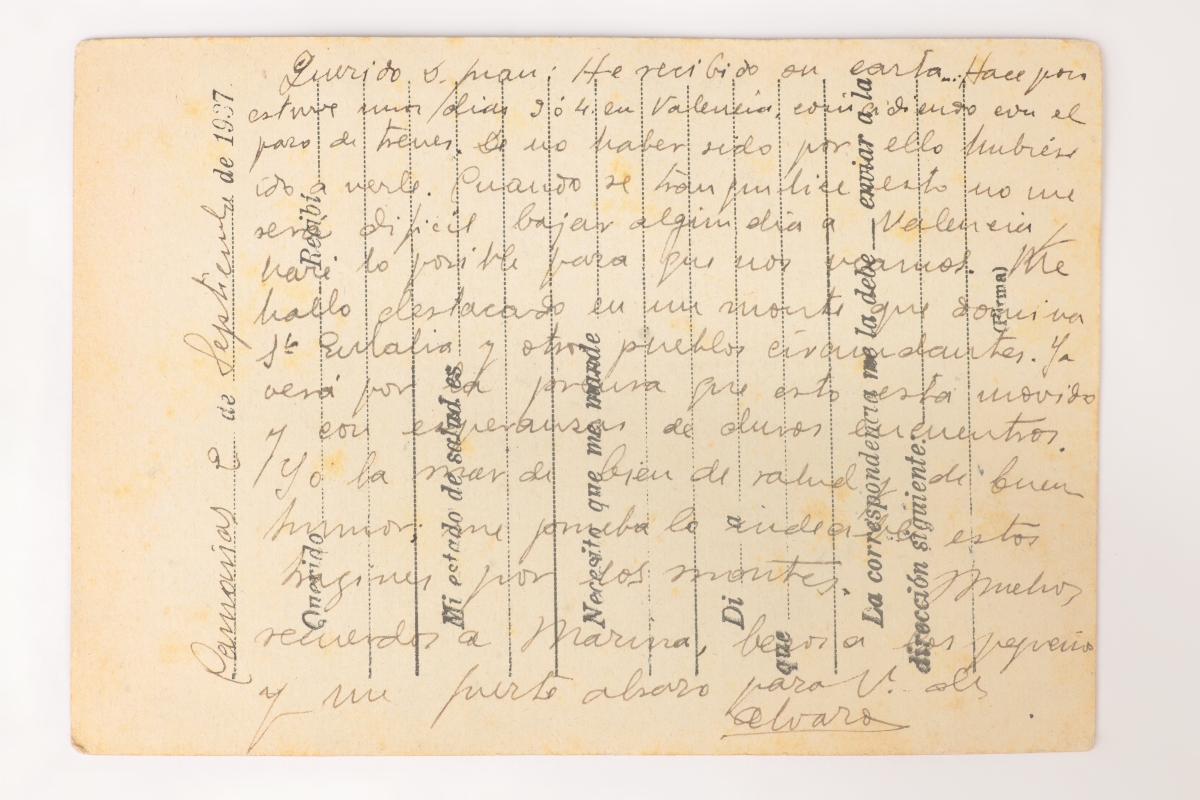 Querido D. Juan: He recibido su carta... Hace poco
estuve unos días 3 ó 4 en Valencia, coincidiendo con el
paro de trenes. De no haber sido por ello hubiese
ido a verle. Cuando se tranquilice esto no me
será dificil bajar algun dia a Valencia,
haré lo posible para que nos veamos. Me
hallo destacado en un monte que domina
Sta Eulalia y otros pueblos circundantes. Ya
verá por la prensa que esto está movido
y con esperanzas de duros encuentros.
Yo la mar de bien de salud y de buen
humor; me prueba lo indecible estos
tragines por los montes. Muchos
recuerdos a Marina, besos a los pequeños
y un fuerte abrazo para V. de
Alvaro
de Septiembre de 1937.
Querido Recibí
Mi estado de salud es
Necesito que me mande
Di a
que
La correspondencia me la debe enviar a la
dirección siguiente:
(Firma)